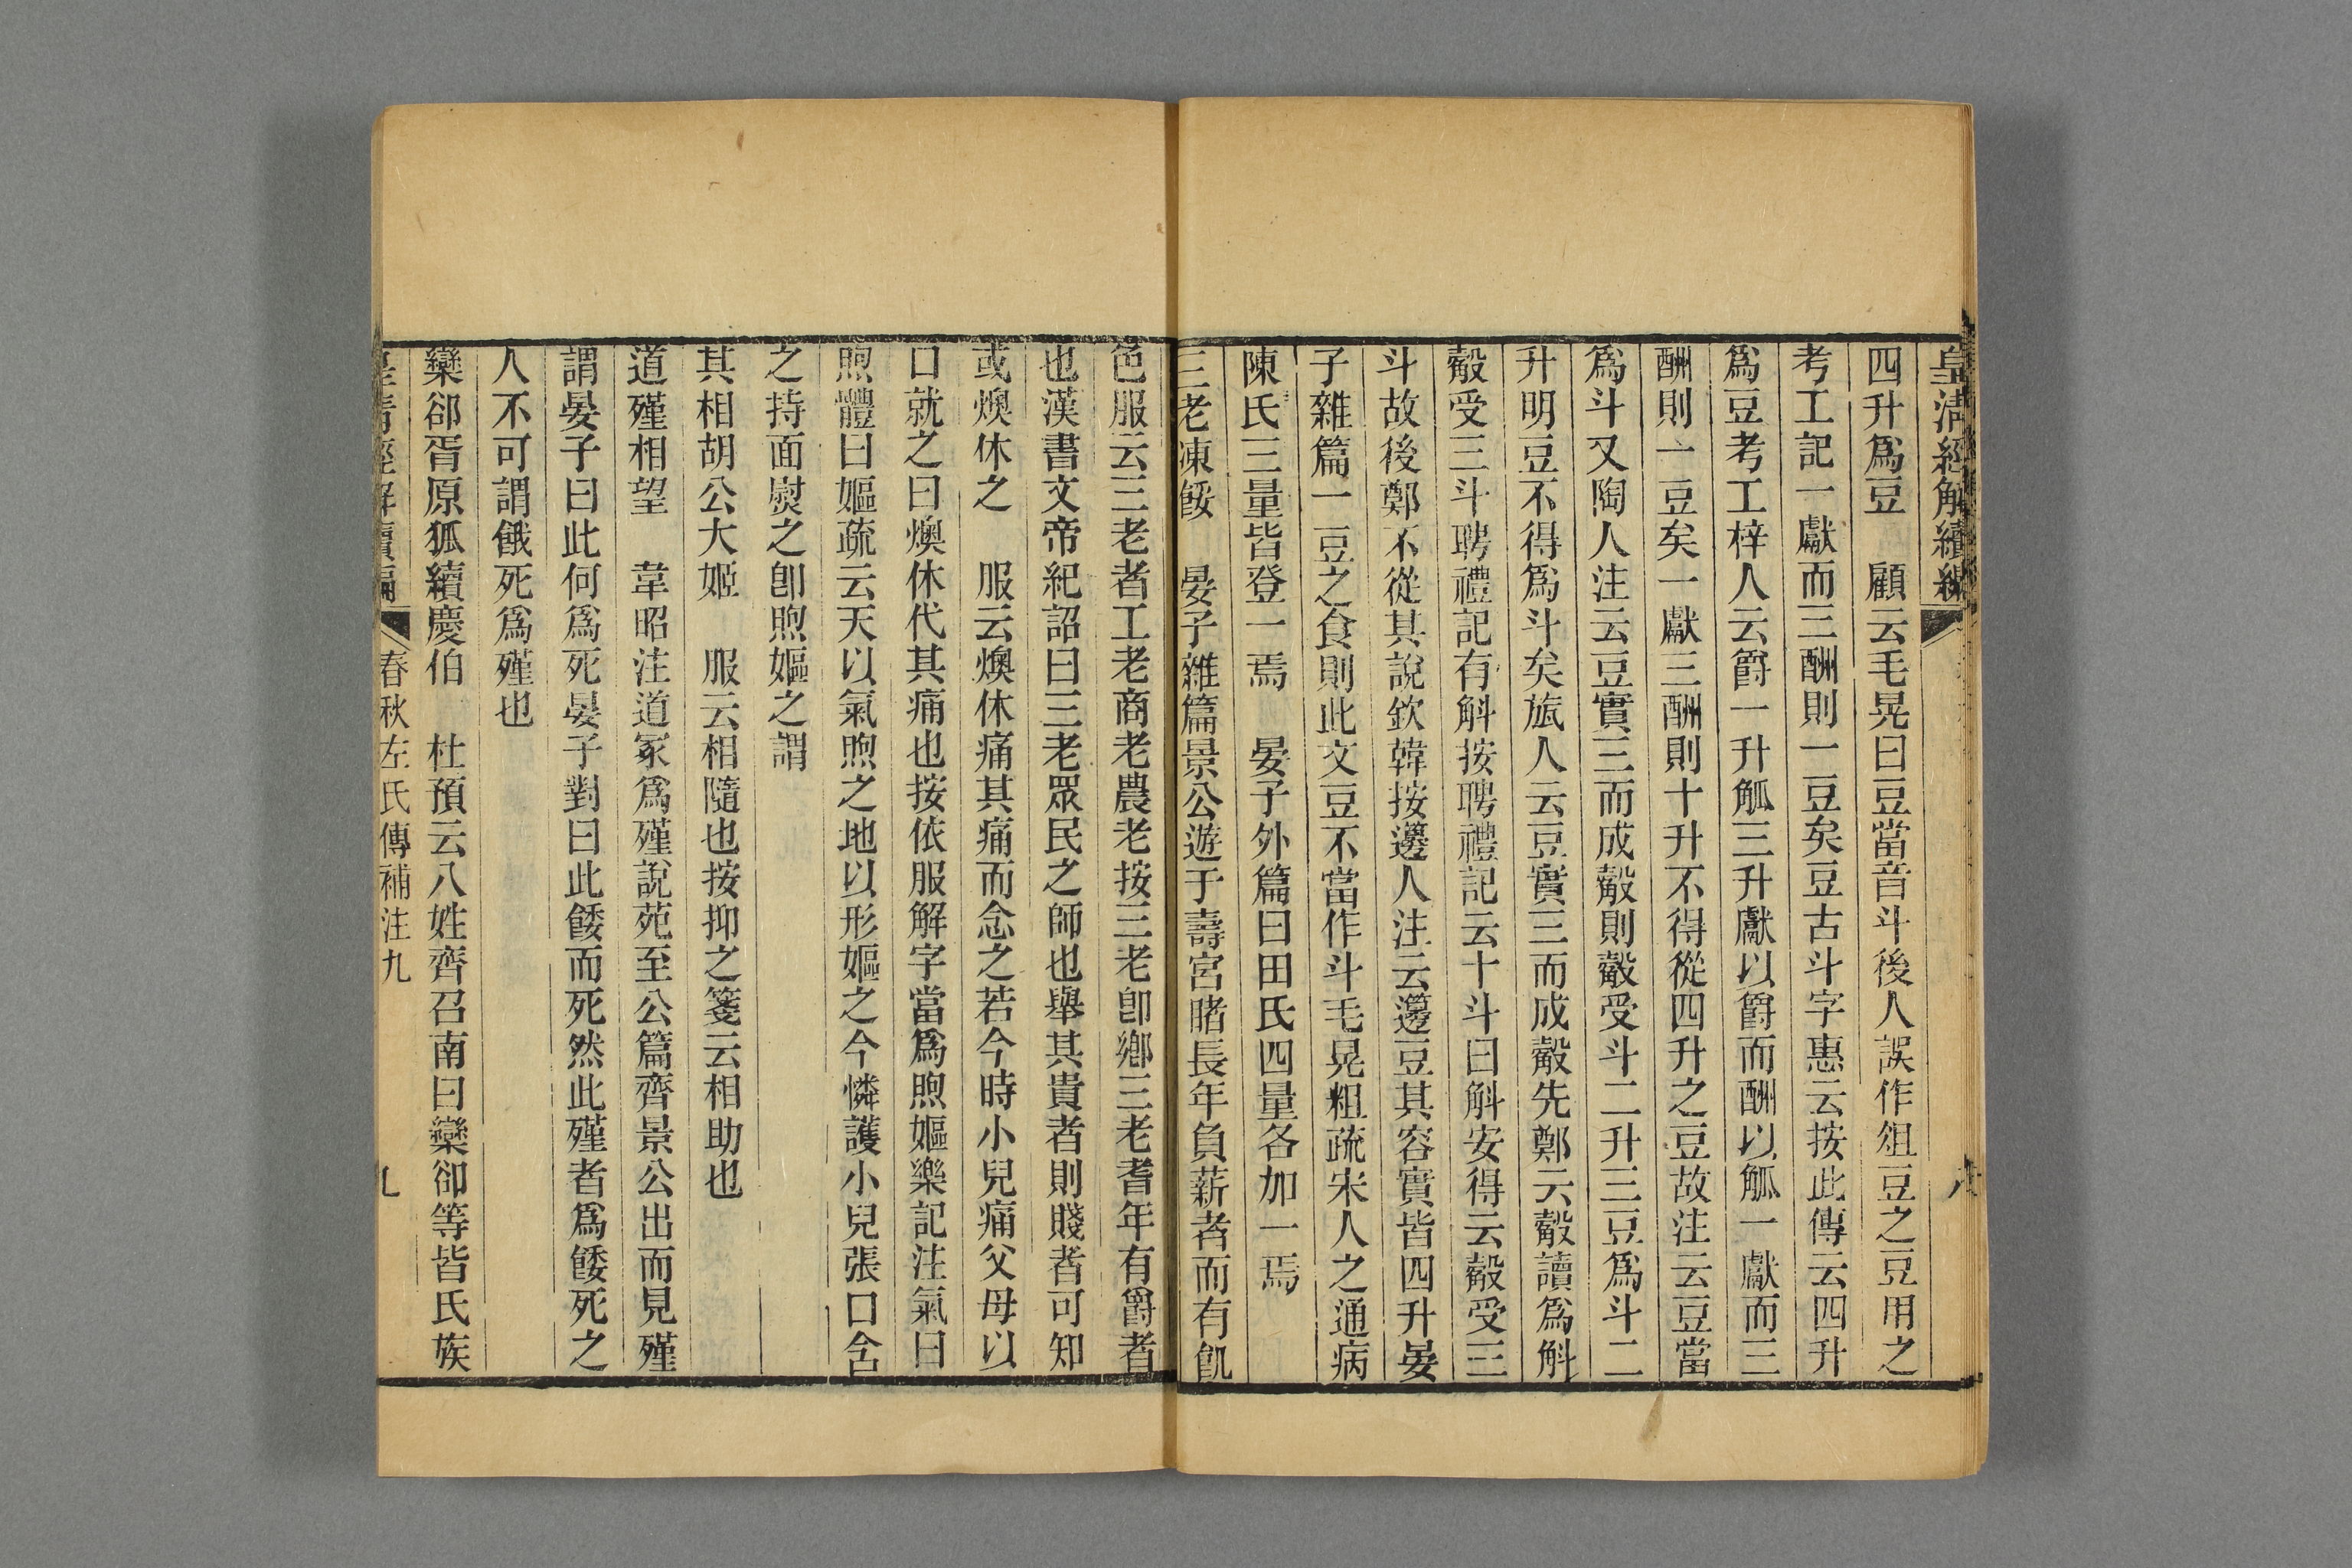 皇清經解續編
八
四升爲豆　顧云毛晃曰豆當音斗後人誤作俎豆之豆用之
考工記一獻而三酬則一豆矣豆古斗字惠云按此傳云四升
爲豆考工梓人云爵一升觚三升獻以爵而酬以觚一獻而三
酬則一豆矣一獻三酬則十升不得從四升之豆故注云豆當
爲斗又陶人注云豆實三而成觳則觳受斗二升三豆爲斗二
升明豆不得爲斗矣旊人云豆實三而成觳先鄭云觳讀爲斛
觳受三斗聘禮記有斛按聘禮記云十斗曰斛安得云觳受三
斗故後鄭不從其說欽韓按籩人注云籩豆其容實皆四升晏
子雜篇一豆之食則此文豆不當作斗毛晃粗疏宋人之通病
陳氏三量皆登一焉　晏子外篇曰田氏四量各加一焉
三老凍餒　晏子雜篇景公遊于壽宮睹長年負薪者而有飢
色服云三老者工老商老農老按三老卽鄉三老耆年有爵者
也漢書文帝紀詔曰三老眾民之師也舉其貴者則賤者可知
或燠休之　服云燠休痛其痛而念之若今時小兒痛父母以
口就之曰燠休代其痛也按依服解字當爲煦嫗樂記注氣曰
煦體曰嫗疏云天以氣煦之地以形嫗之今憐護小兒張口含
之持面熨之卽煦嫗之謂
其相胡公大姬　服云相隨也按抑之箋云相助也
道殣相望　韋昭注道冢爲殣說苑至公篇齊景公出而見殣
謂晏子曰此何爲死晏子對曰此餧而死然此殣者爲餧死之
人不可謂餓死爲殣也
欒郤胥原狐續慶伯　杜預云八姓齊召南曰欒卻等皆氏族
皇清經解續編
春秋左氏傳補注九
九